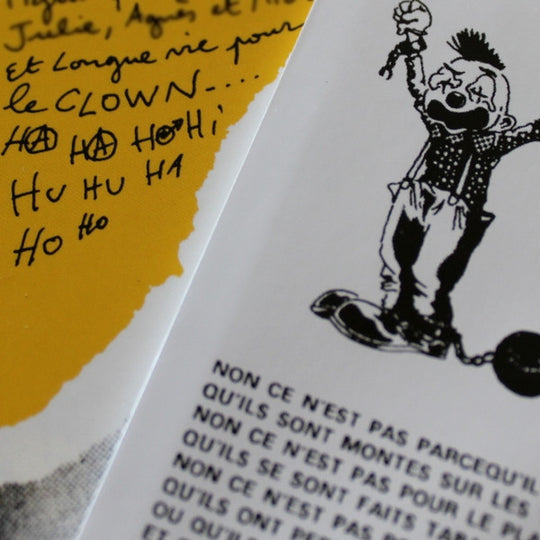 Julie, Agnès et
et Longue vie pour
le CLOWN....
HA HA HO Hi
HU HU HA
HO Ho
NON CE N'EST PAS PARCEQU'IL
QU'ILS SONT MONTES SUR LES
NON CE N'EST PAS POUR LE PLA
QU'ILS SE SONT FAITS TAB
NON CE N'EST PAS
QU'ILS ONT PER
OU QU'IL
ET